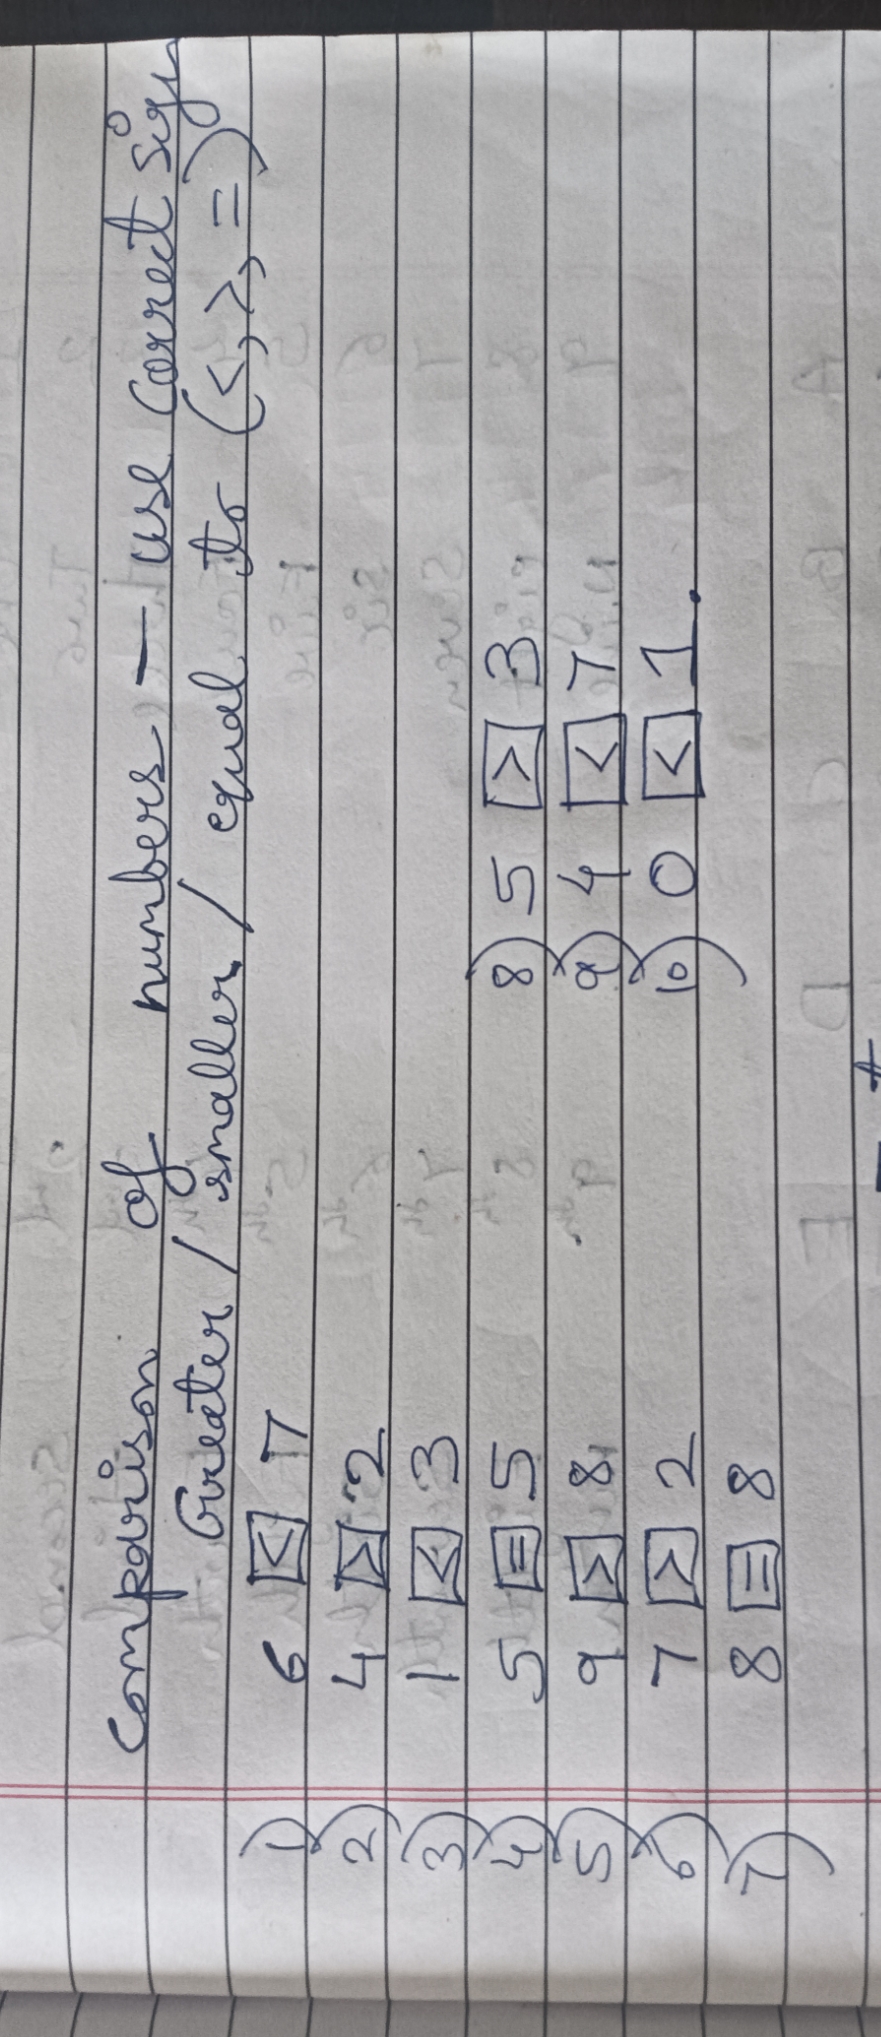 Comparison of numbers — use correct sign
Greater / smaller / equal to (<, >, =)
1) 6 < 7
2) 4 > 2
3) 1 < 3
4) 5 = 5
5) 9 > 8
6) 7 > 2
7) 8 = 8
8) 5 > 3
9) 4 < 7
10) 0 < 1.